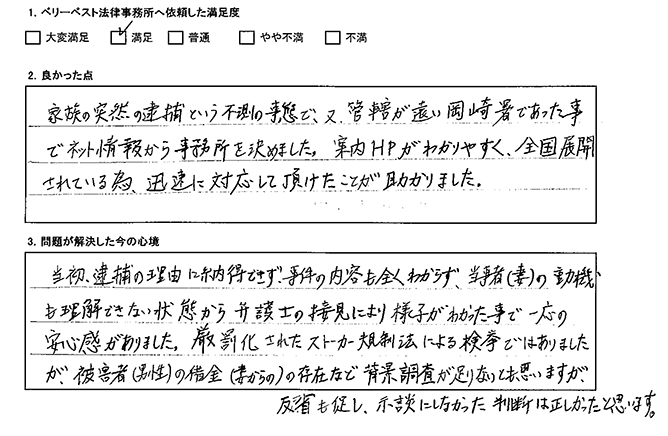 1. ベリーベスト法律事務所へ依頼した満足度
大変満足 満足 普通 やや不満 不満
2. 良かった点
家族の突然の逮捕という不測の事態で、又、管轄が遠い岡崎署であった事
でネット情報から事務所を決めました。案内HPがわかりやすく、全国展開
されている為、迅速に対応して頂けたことが助かりました。
3. 問題が解決した今の心境
当初、逮捕の理由に納得できず、事件の内容も全くわからず、当事者(妻)の動機
も理解できない状態から弁護士の接見により様子がわかった事で一応の
安心感がありました。厳罰化されたストーカー規制法による検挙ではありました
が、被害者(男性)の借金(妻からの)の存在など背景調査が足りないとも思いますが、
反省も促し、示談にしなかった判断は正しかったと思います。